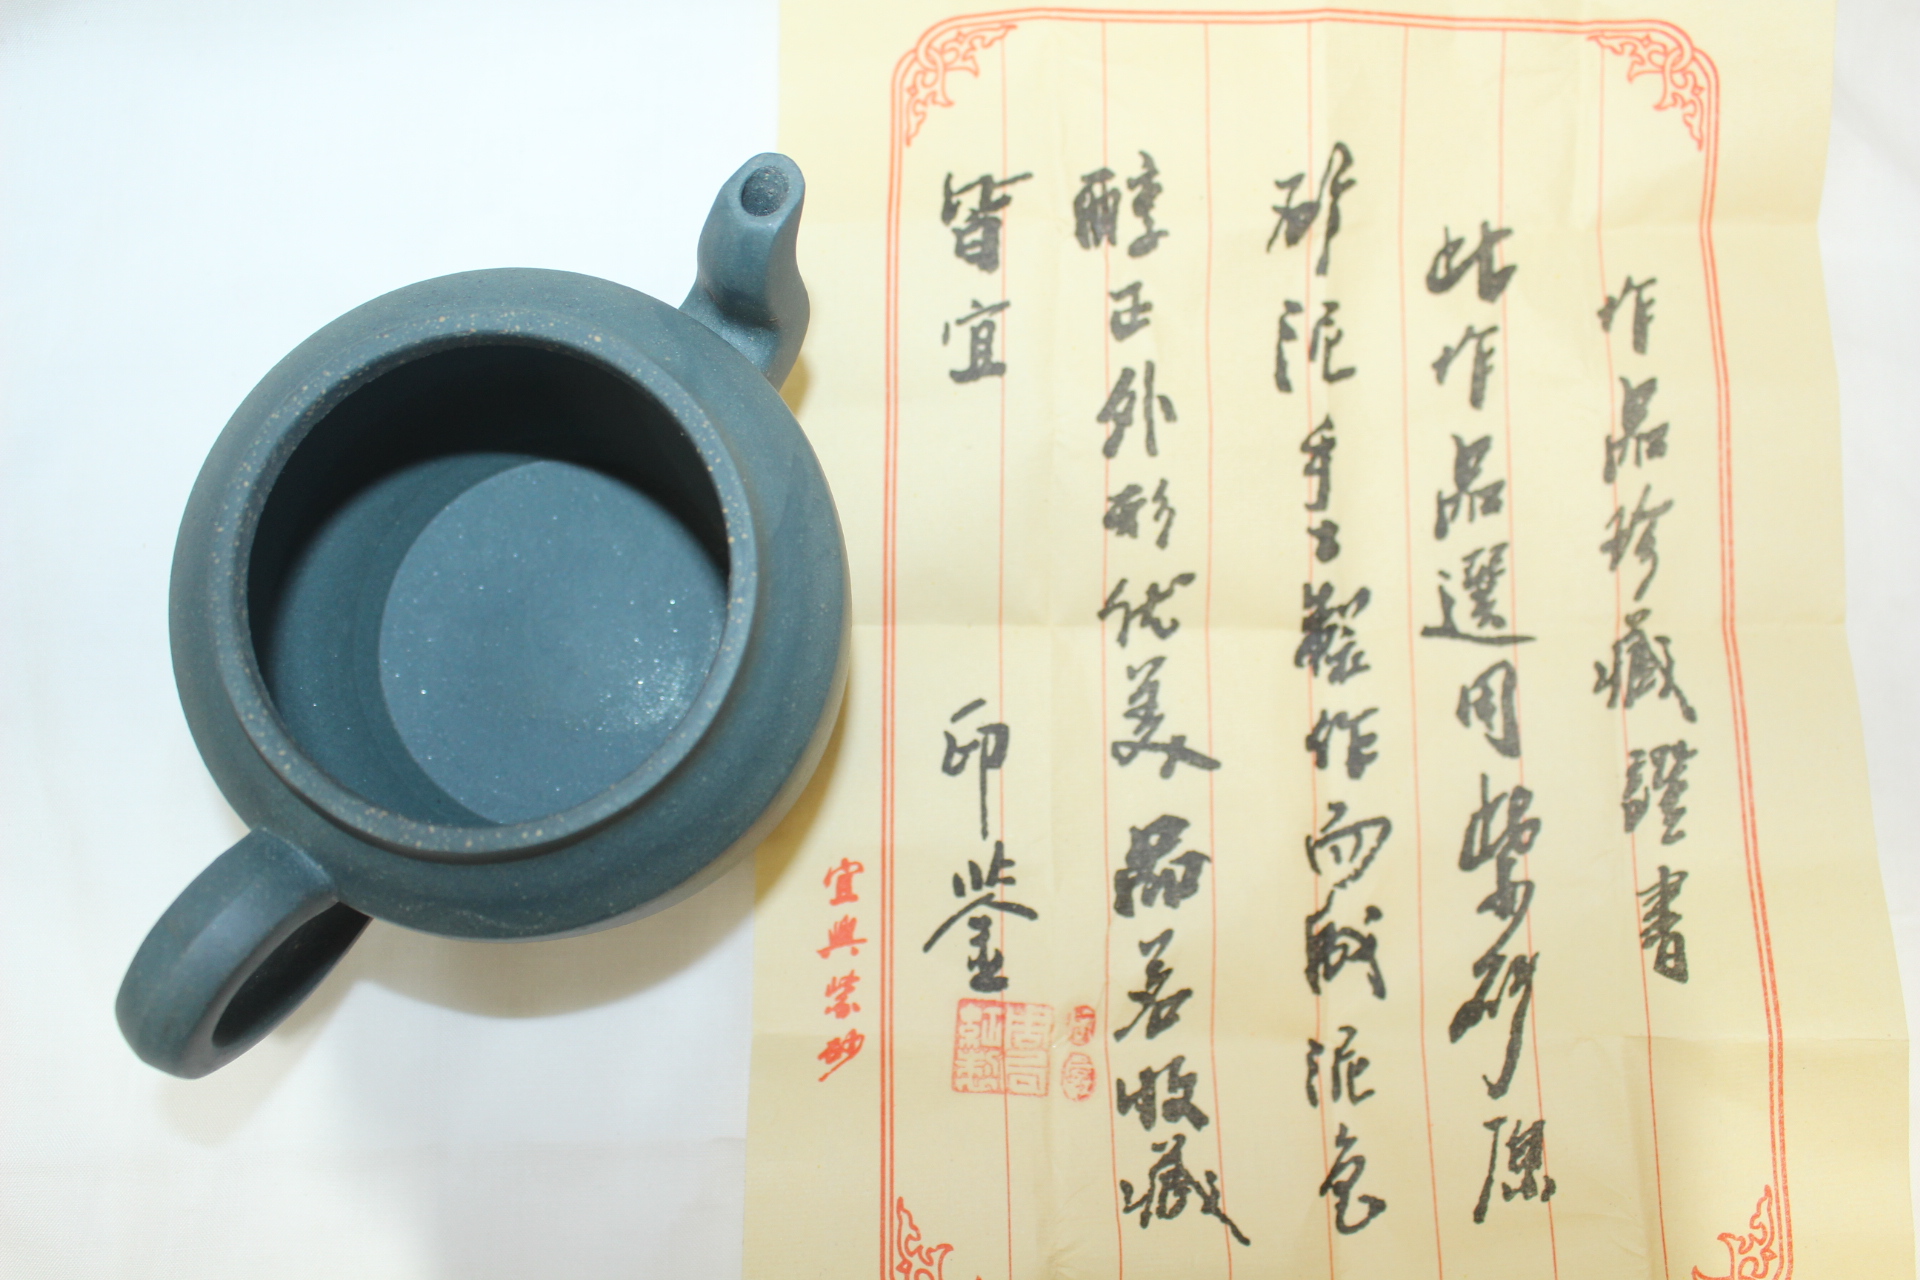 作品珍藏證書
此作品選用紫砂原
矿泥手工製作而成泥色
醇正外形优美品茗收藏
皆宜
印鉴
宜興紫砂